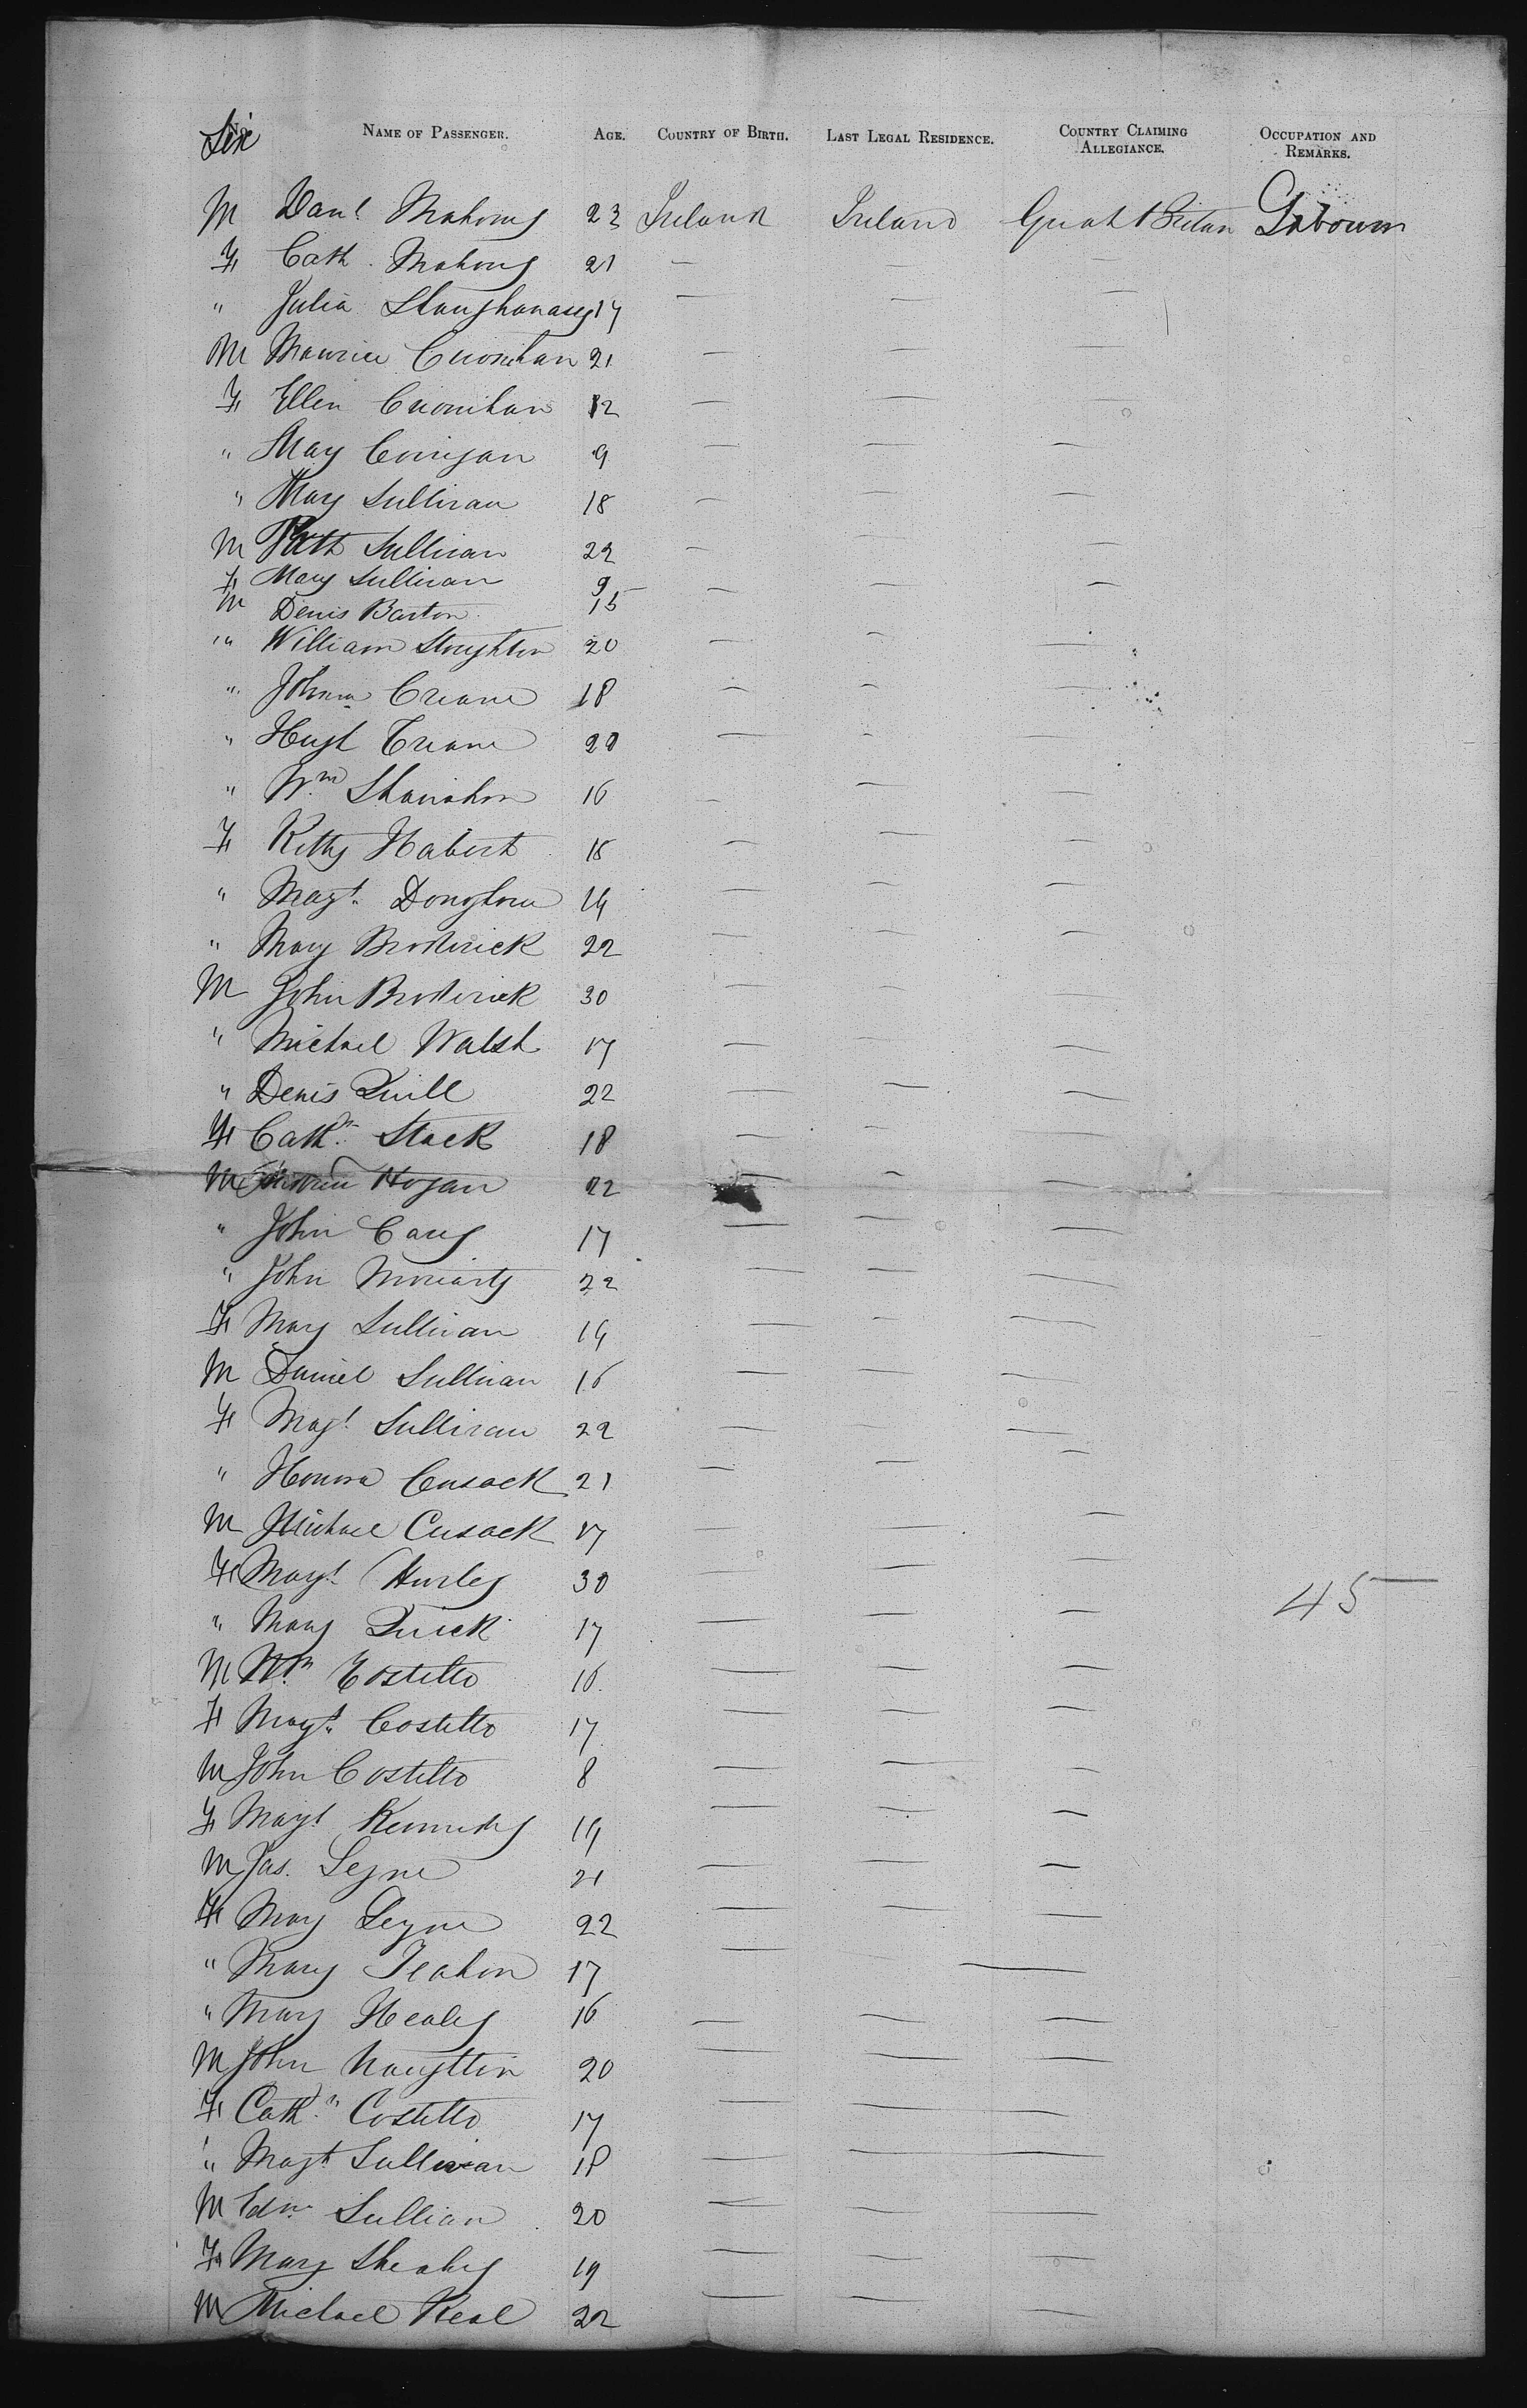 Sex NAME OF PASSENGER. AGE. COUNTRY OF BIRTH. LAST LEGAL RESIDENCE. COUNTRY CLAIMING ALLEGIANCE. OCCUPATION AND REMARKS.
M Danl Mahony 23 Ireland Ireland Great Britan Labourer
F Cath Mahony 21 — — —
" Julia Shaughnasey 17 — — —
M Maurice Cronihan 21 — — —
F Ellen Cronihan 12 — — —
" May Corrigan 9 — — —
" Mary Sullivan 18 — — —
M Patk Sullivan 22 — — —
F Mary Sullivan 9 — — —
M Denis Barton 15
" William Stoughton 20 — — —
" Johnn Creane 18 — — —
" Hugh Creane 20 — — —
" Wm Shanahon 16 — — —
F Kitty Habert 18 — — —
" Magt Donghoue 19 — — —
" Mary Broderick 22 — — —
M John Broderick 30 — — —
" Michael Walsh 17 — — —
" Denis Quill 22 — — —
F Cathn Stack 18 — — —
M Hogan 22 — — —
" John Carey 17 — — —
" John Moriarty 22 — — —
F Mary Sullivan 19 — — —
M Daniel Sullivan 16 — — —
F Magt Sullivan 22 — — —
" Honora Cusack 21 — — —
M Michael Cusack 17 — — —
F Magt Hurley 30 — — —
" Mary Quick 17 — — — 45
M Wm Costello 16 — — —
F Magt Costello 17 — — —
M John Costello 8 — — —
F Magt Kennedy 19 — — —
M Jas. Leyne 21 — — —
F May Leyne 22 — — —
" Mary Teahon 17 — —
" Mary Healey 16 — — —
M John Naughtin 20 — — —
F Cathn Costello 17 — — —
" Magt Sullivan 18 — — —
M Edm Sullian 20 — — —
F Mary Sheahy 19 — — —
M Michael Keal 22 — — —